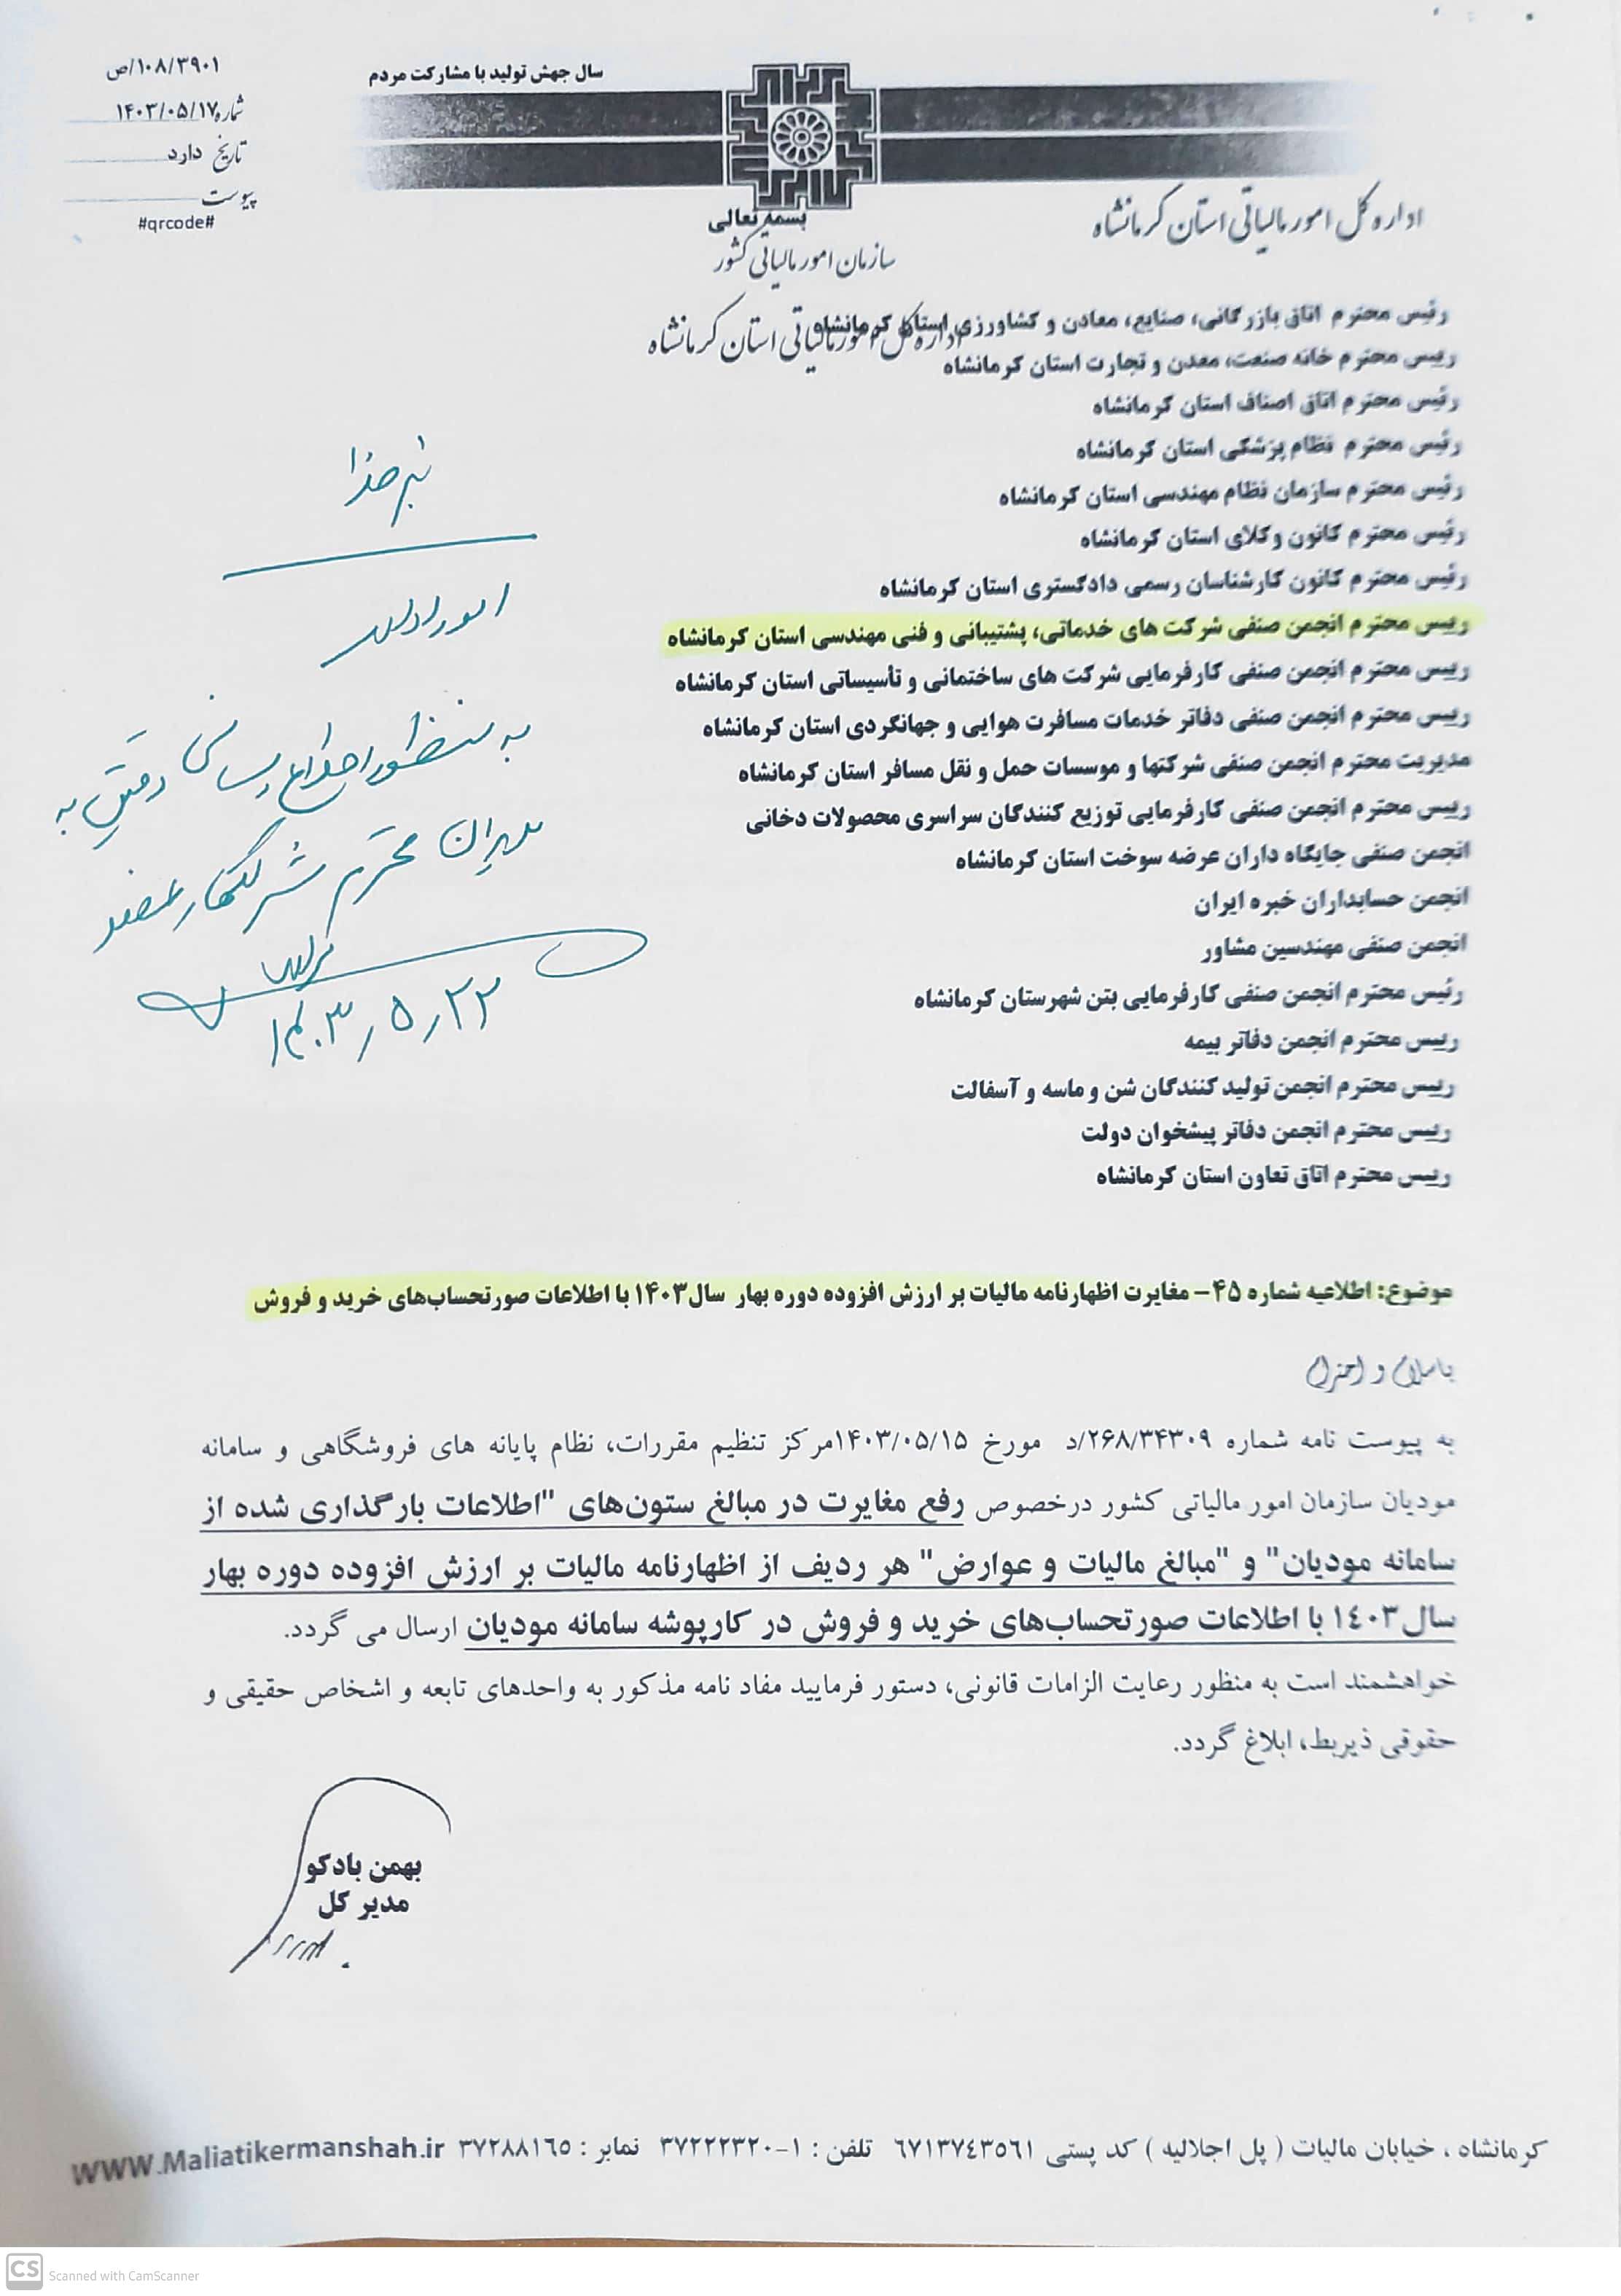 سال جهش تولید با مشارکت مردم
۱۰۸/۳۹۰۱/ص
شماره ۱۴۰۳/۰۵/۱۷
تاریخ دارد
پیوست
#qrcode#
بسمه تعالی
سازمان امور مالیاتی کشور
اداره کل امور مالیاتی استان کرمانشاه
اداره کل امور مالیاتی استان کرمانشاه
رئیس محترم اتاق بازرگانی، صنایع، معادن و کشاورزی استان کرمانشاه
رییس محترم خانه صنعت، معدن و تجارت استان کرمانشاه
رئیس محترم اتاق اصناف استان کرمانشاه
رئیس محترم نظام پزشکی استان کرمانشاه
رئیس محترم سازمان نظام مهندسی استان کرمانشاه
رئیس محترم کانون وکلای استان کرمانشاه
رئیس محترم کانون کارشناسان رسمی دادگستری استان کرمانشاه
رییس محترم انجمن صنفی شرکت های خدماتی، پشتیبانی و فنی مهندسی استان کرمانشاه
رییس محترم انجمن صنفی کارفرمایی شرکت های ساختمانی و تأسیساتی استان کرمانشاه
رییس محترم انجمن صنفی دفاتر خدمات مسافرت هوایی و جهانگردی استان کرمانشاه
مدیریت محترم انجمن صنفی شرکتها و موسسات حمل و نقل مسافر استان کرمانشاه
رییس محترم انجمن صنفی کارفرمایی توزیع کنندگان سراسری محصولات دخانی
انجمن صنفی جایگاه داران عرضه سوخت استان کرمانشاه
انجمن حسابداران خبره ایران
انجمن صنفی مهندسین مشاور
رئیس محترم انجمن صنفی کارفرمایی بتن شهرستان کرمانشاه
رییس محترم انجمن دفاتر بیمه
رییس محترم انجمن تولید کنندگان شن و ماسه و آسفالت
رییس محترم انجمن دفاتر پیشخوان دولت
رییس محترم اتاق تعاون استان کرمانشاه
به منظور اطلاع رسانی دقیق به
مدیران محترم شرکتهای عضو
۱۴۰۳/۵/۲۳
موضوع: اطلاعیه شماره ۴۵- مغایرت اظهارنامه مالیات بر ارزش افزوده دوره بهار سال۱۴۰۳ با اطلاعات صورتحساب‌های خرید و فروش
باسلام و احترام
به پیوست نامه شماره ۲۶۸/۳۴۳۰۹/د مورخ ۱۴۰۳/۰۵/۱۵مرکز تنظیم مقررات، نظام پایانه های فروشگاهی و سامانه
مودیان سازمان امور مالیاتی کشور درخصوص رفع مغایرت در مبالغ ستون‌های "اطلاعات بارگذاری شده از
سامانه مودیان" و "مبالغ مالیات و عوارض" هر ردیف از اظهارنامه مالیات بر ارزش افزوده دوره بهار
سال ۱٤۰۳ با اطلاعات صورتحساب‌های خرید و فروش در کارپوشه سامانه مودیان ارسال می گردد.
خواهشمند است به منظور رعایت الزامات قانونی، دستور فرمایید مفاد نامه مذکور به واحدهای تابعه و اشخاص حقیقی و
حقوقی ذیربط، ابلاغ گردد.
بهمن بادکو
مدیر کل
کرمانشاه ، خیابان مالیات ( پل اجلالیه ) کد پستی ٦٧١٣٧٤٣٥٦١ تلفن : ١-٣٧٢٢٢٣٢٠ نمابر : ٣٧٢٨٨١٦٥ www.Maliatikermanshah.ir
CS Scanned with CamScanner